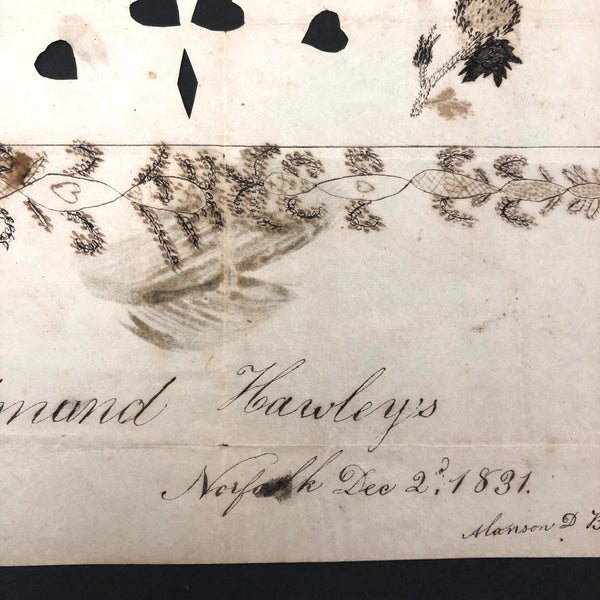 mund Hawley's
Norfolk Dec 2d, 1831.
Alanson D B